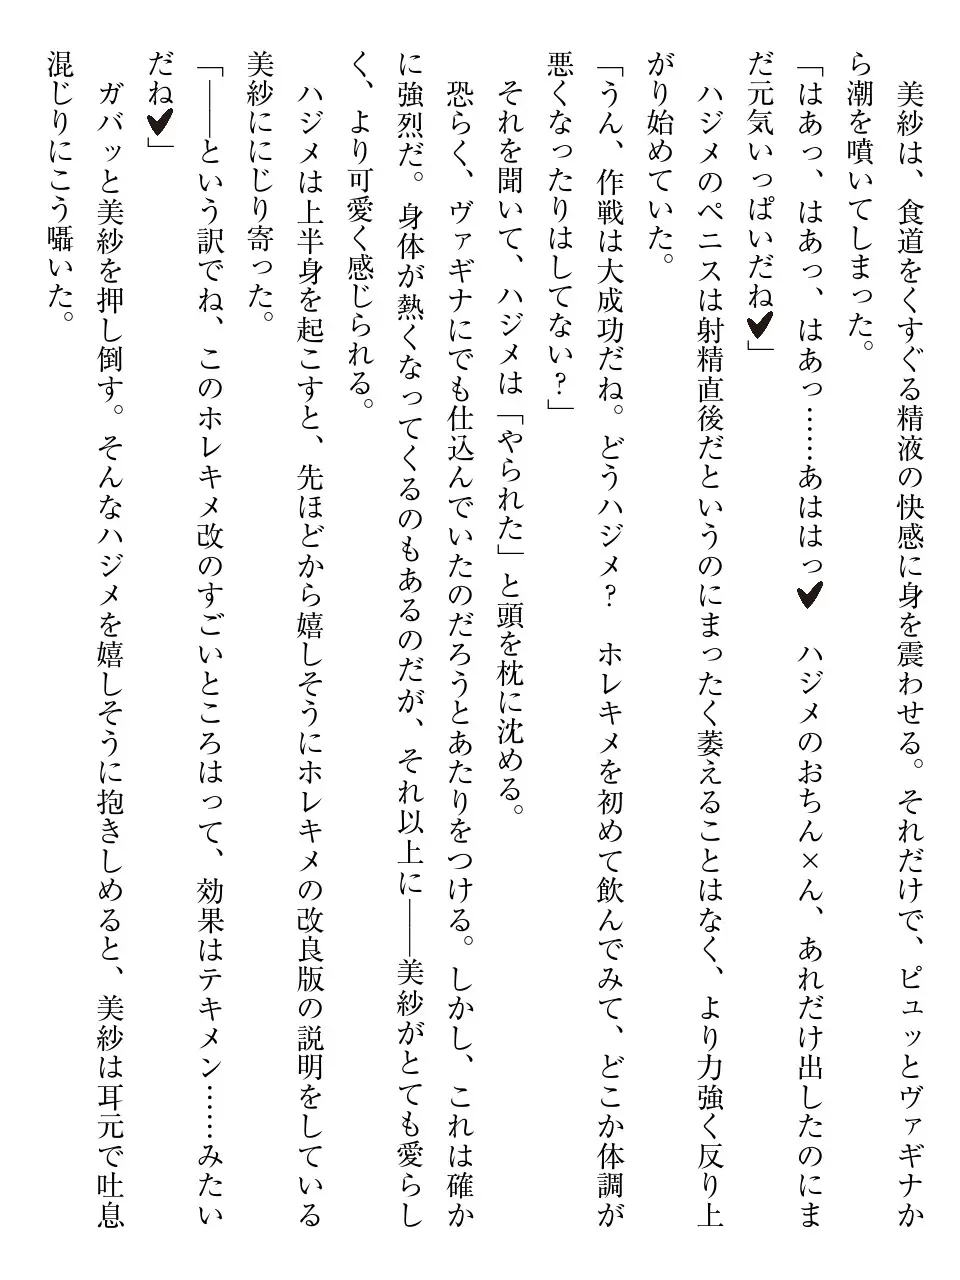 美紗は、食道をくすぐる精液の快感に身を震わせる。それだけで、ピュッとヴァギナか
ら潮を噴いてしまった。
「はあっ、はあっ、はあっ……あははっ♥　ハジメのおちん×ん、あれだけ出したのにま
だ元気いっぱいだね♥」
　ハジメのペニスは射精直後だというのにまったく萎えることはなく、より力強く反り上
がり始めていた。
「うん、作戦は大成功だね。どうハジメ？　ホレキメを初めて飲んでみて、どこか体調が
悪くなったりはしてない？」
　それを聞いて、ハジメは「やられた」と頭を枕に沈める。
　恐らく、ヴァギナにでも仕込んでいたのだろうとあたりをつける。しかし、これは確か
に強烈だ。身体が熱くなってくるのもあるのだが、それ以上に――美紗がとても愛らし
く、より可愛く感じられる。
　ハジメは上半身を起こすと、先ほどから嬉しそうにホレキメの改良版の説明をしている
美紗ににじり寄った。
「――という訳でね、このホレキメ改のすごいところはって、効果はテキメン……みたい
だね♥」
　ガバッと美紗を押し倒す。そんなハジメを嬉しそうに抱きしめると、美紗は耳元で吐息
混じりにこう囁いた。